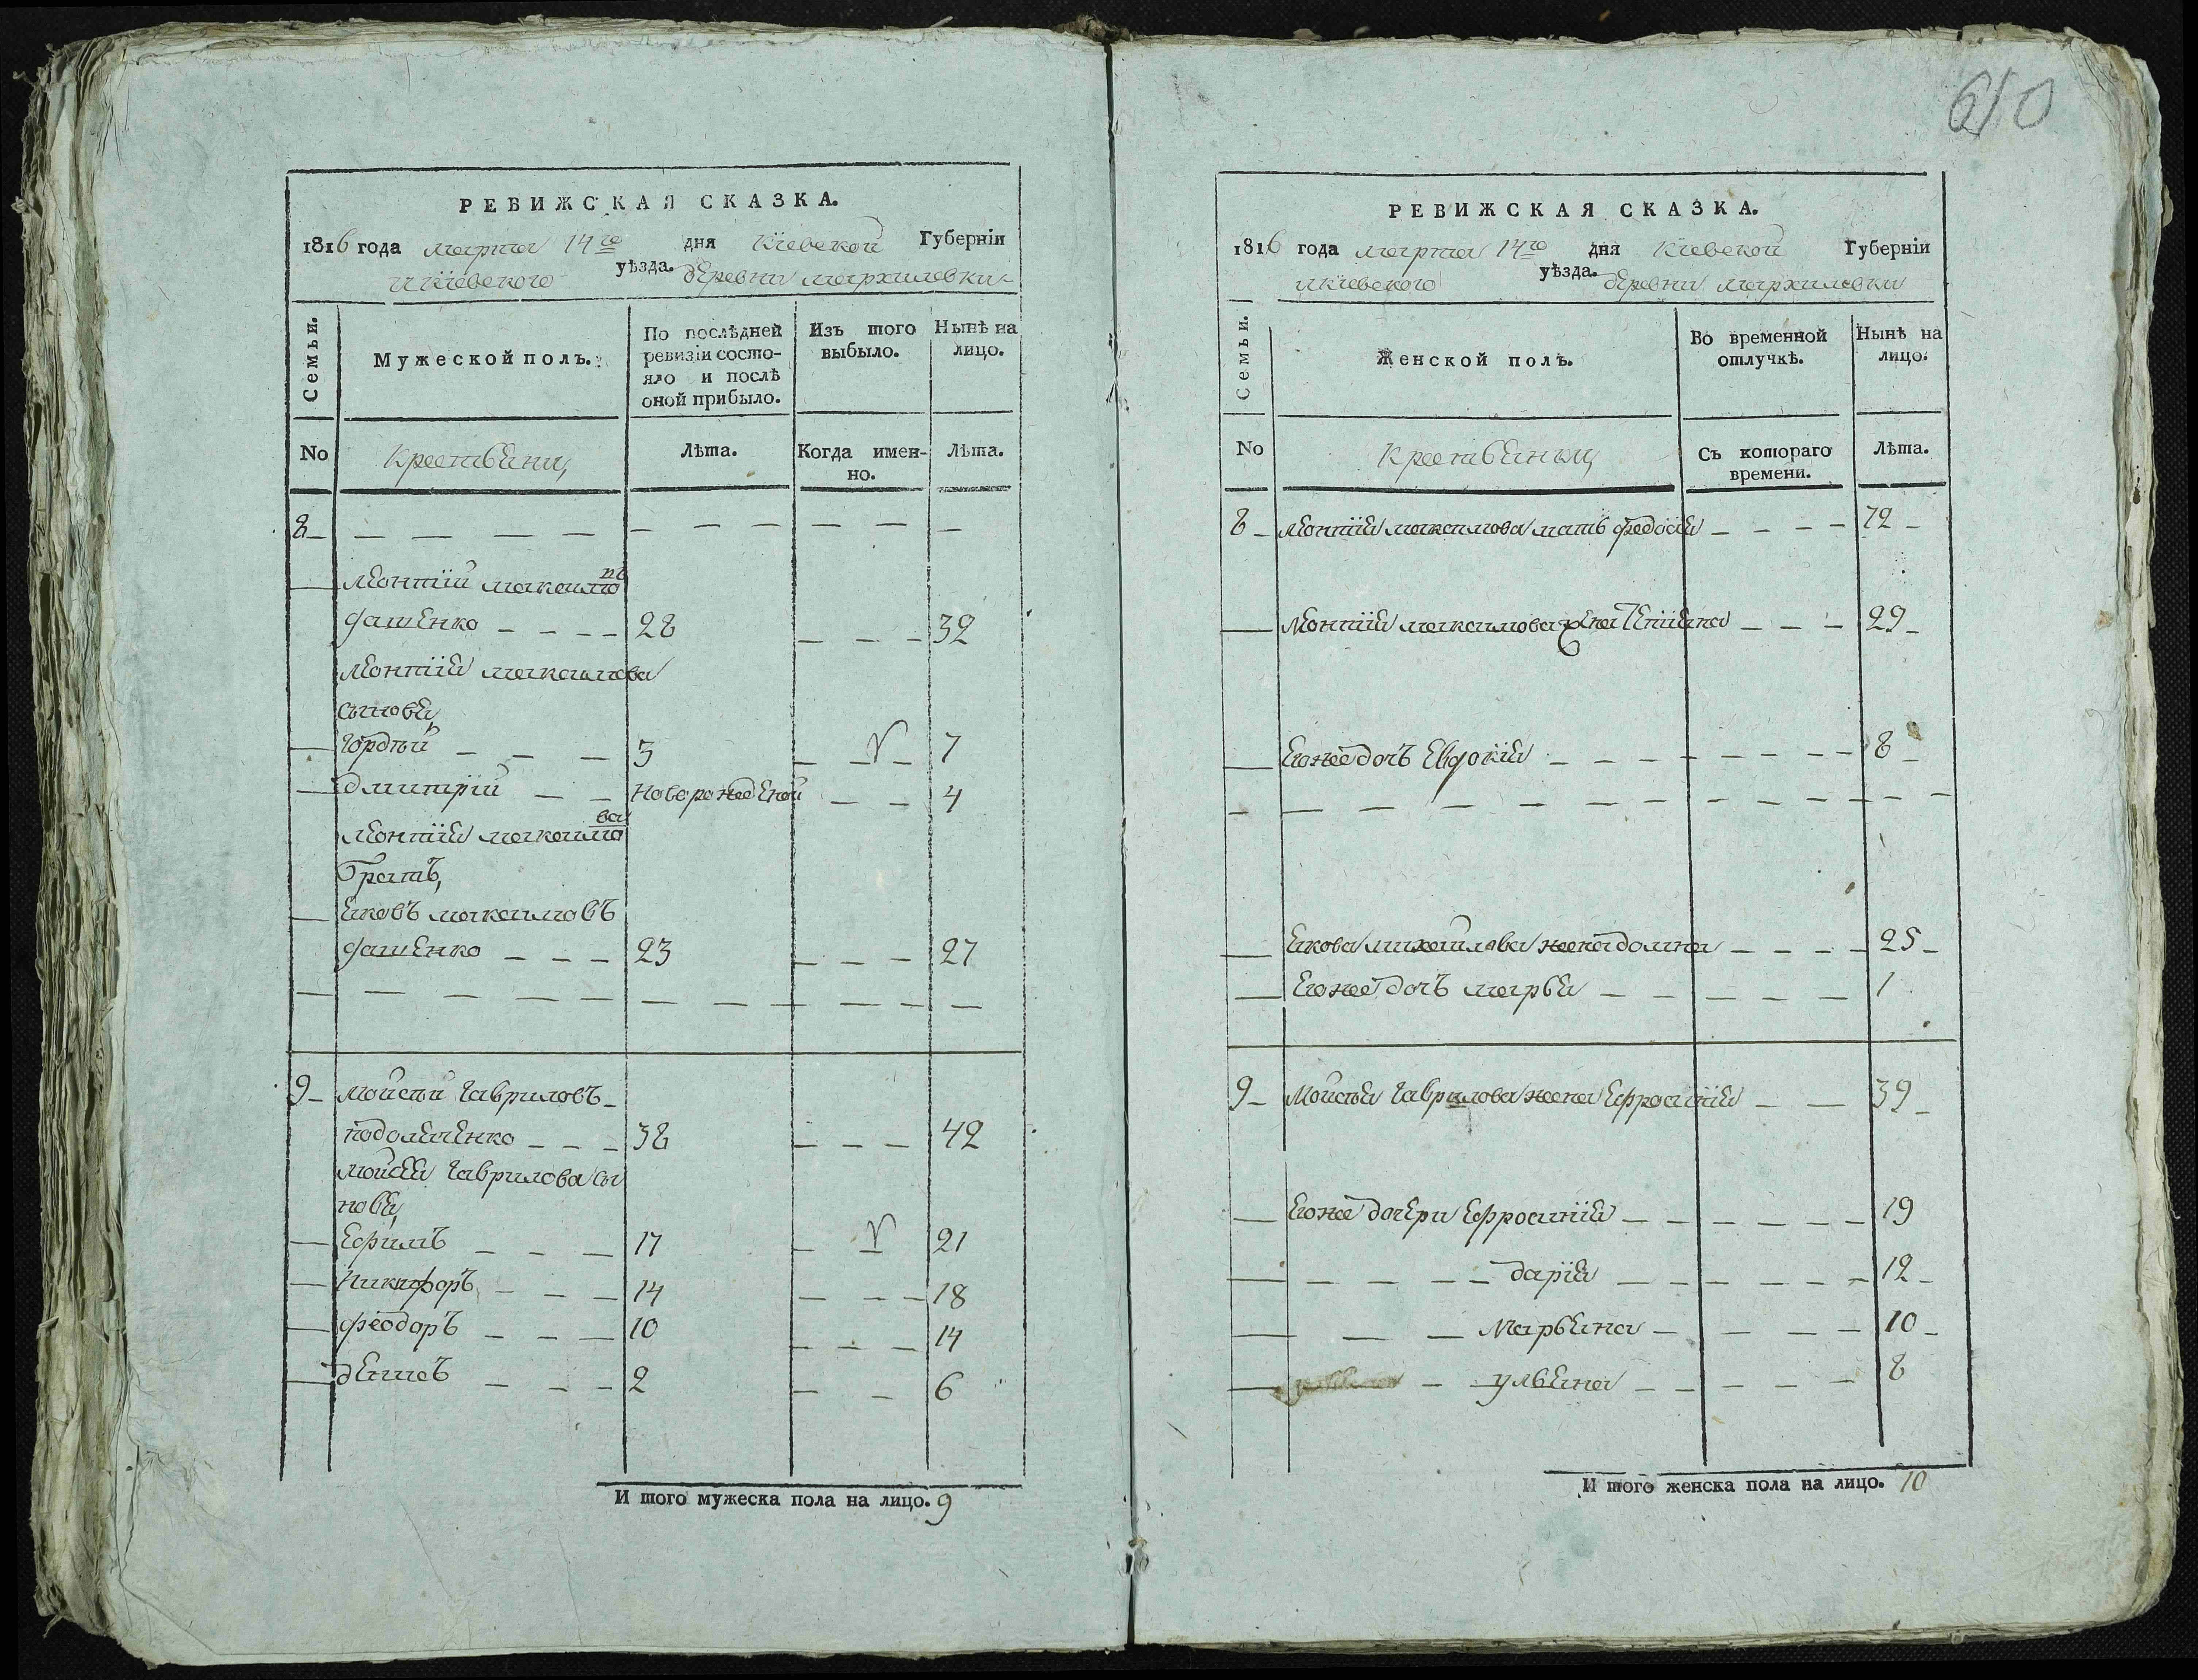 610
РЕВИЖСКАЯ СКАЗКА.
1816 года марта 14го дня Кіевской Губерніи
и кіевского уѣзда. деревни мархилевки
Семьи.
Мужеской полъ.
По послѣдней ревизіи состояло и послѣ оной прибыло.
Изъ того выбыло.
Нынѣ на лицо.
No
Крестьяни,
Лѣта.
Когда именно.
Лѣта.
8
Монтій максимовъ
дашенко 28 32
Монтія максимова
сыновя,
гордѣй 3 7
дмитрій новорожденой 4
Монтія максимова
братъ,
яковъ максимовъ
дашенко 23 27
9 Мойсѣй гавриловъ
подолянченко 38 42
Мойсѣя гаврилова сы
новя,
Ефимъ 17 21
Никифоръ 14 18
феодоръ 10 14
денисъ 2 6
И того мужеска пола на лицо. 9
РЕВИЖСКАЯ СКАЗКА.
1816 года марта 14го дня Кіевской Губерніи
и кіевского уѣзда. деревни мархилевки
Семьи.
Женской полъ.
Во временной отлучкѣ.
Нынѣ на лицо.
No
Крестьянки,
Съ котораго времени.
Лѣта.
8 Монтія максимова мать федосія 72
Монтія максимова жена тетіяна 29
Его же дочь Евдокія 8
Якова михайлова жена домна 25
Его же дочь марья 1
9 Мойсѣя гаврилова жена Ефросинія 39
Его же дочери Ефросинія 19
дарія 12
Марьяна 10
ульяна 8
И того женска пола на лицо. 10